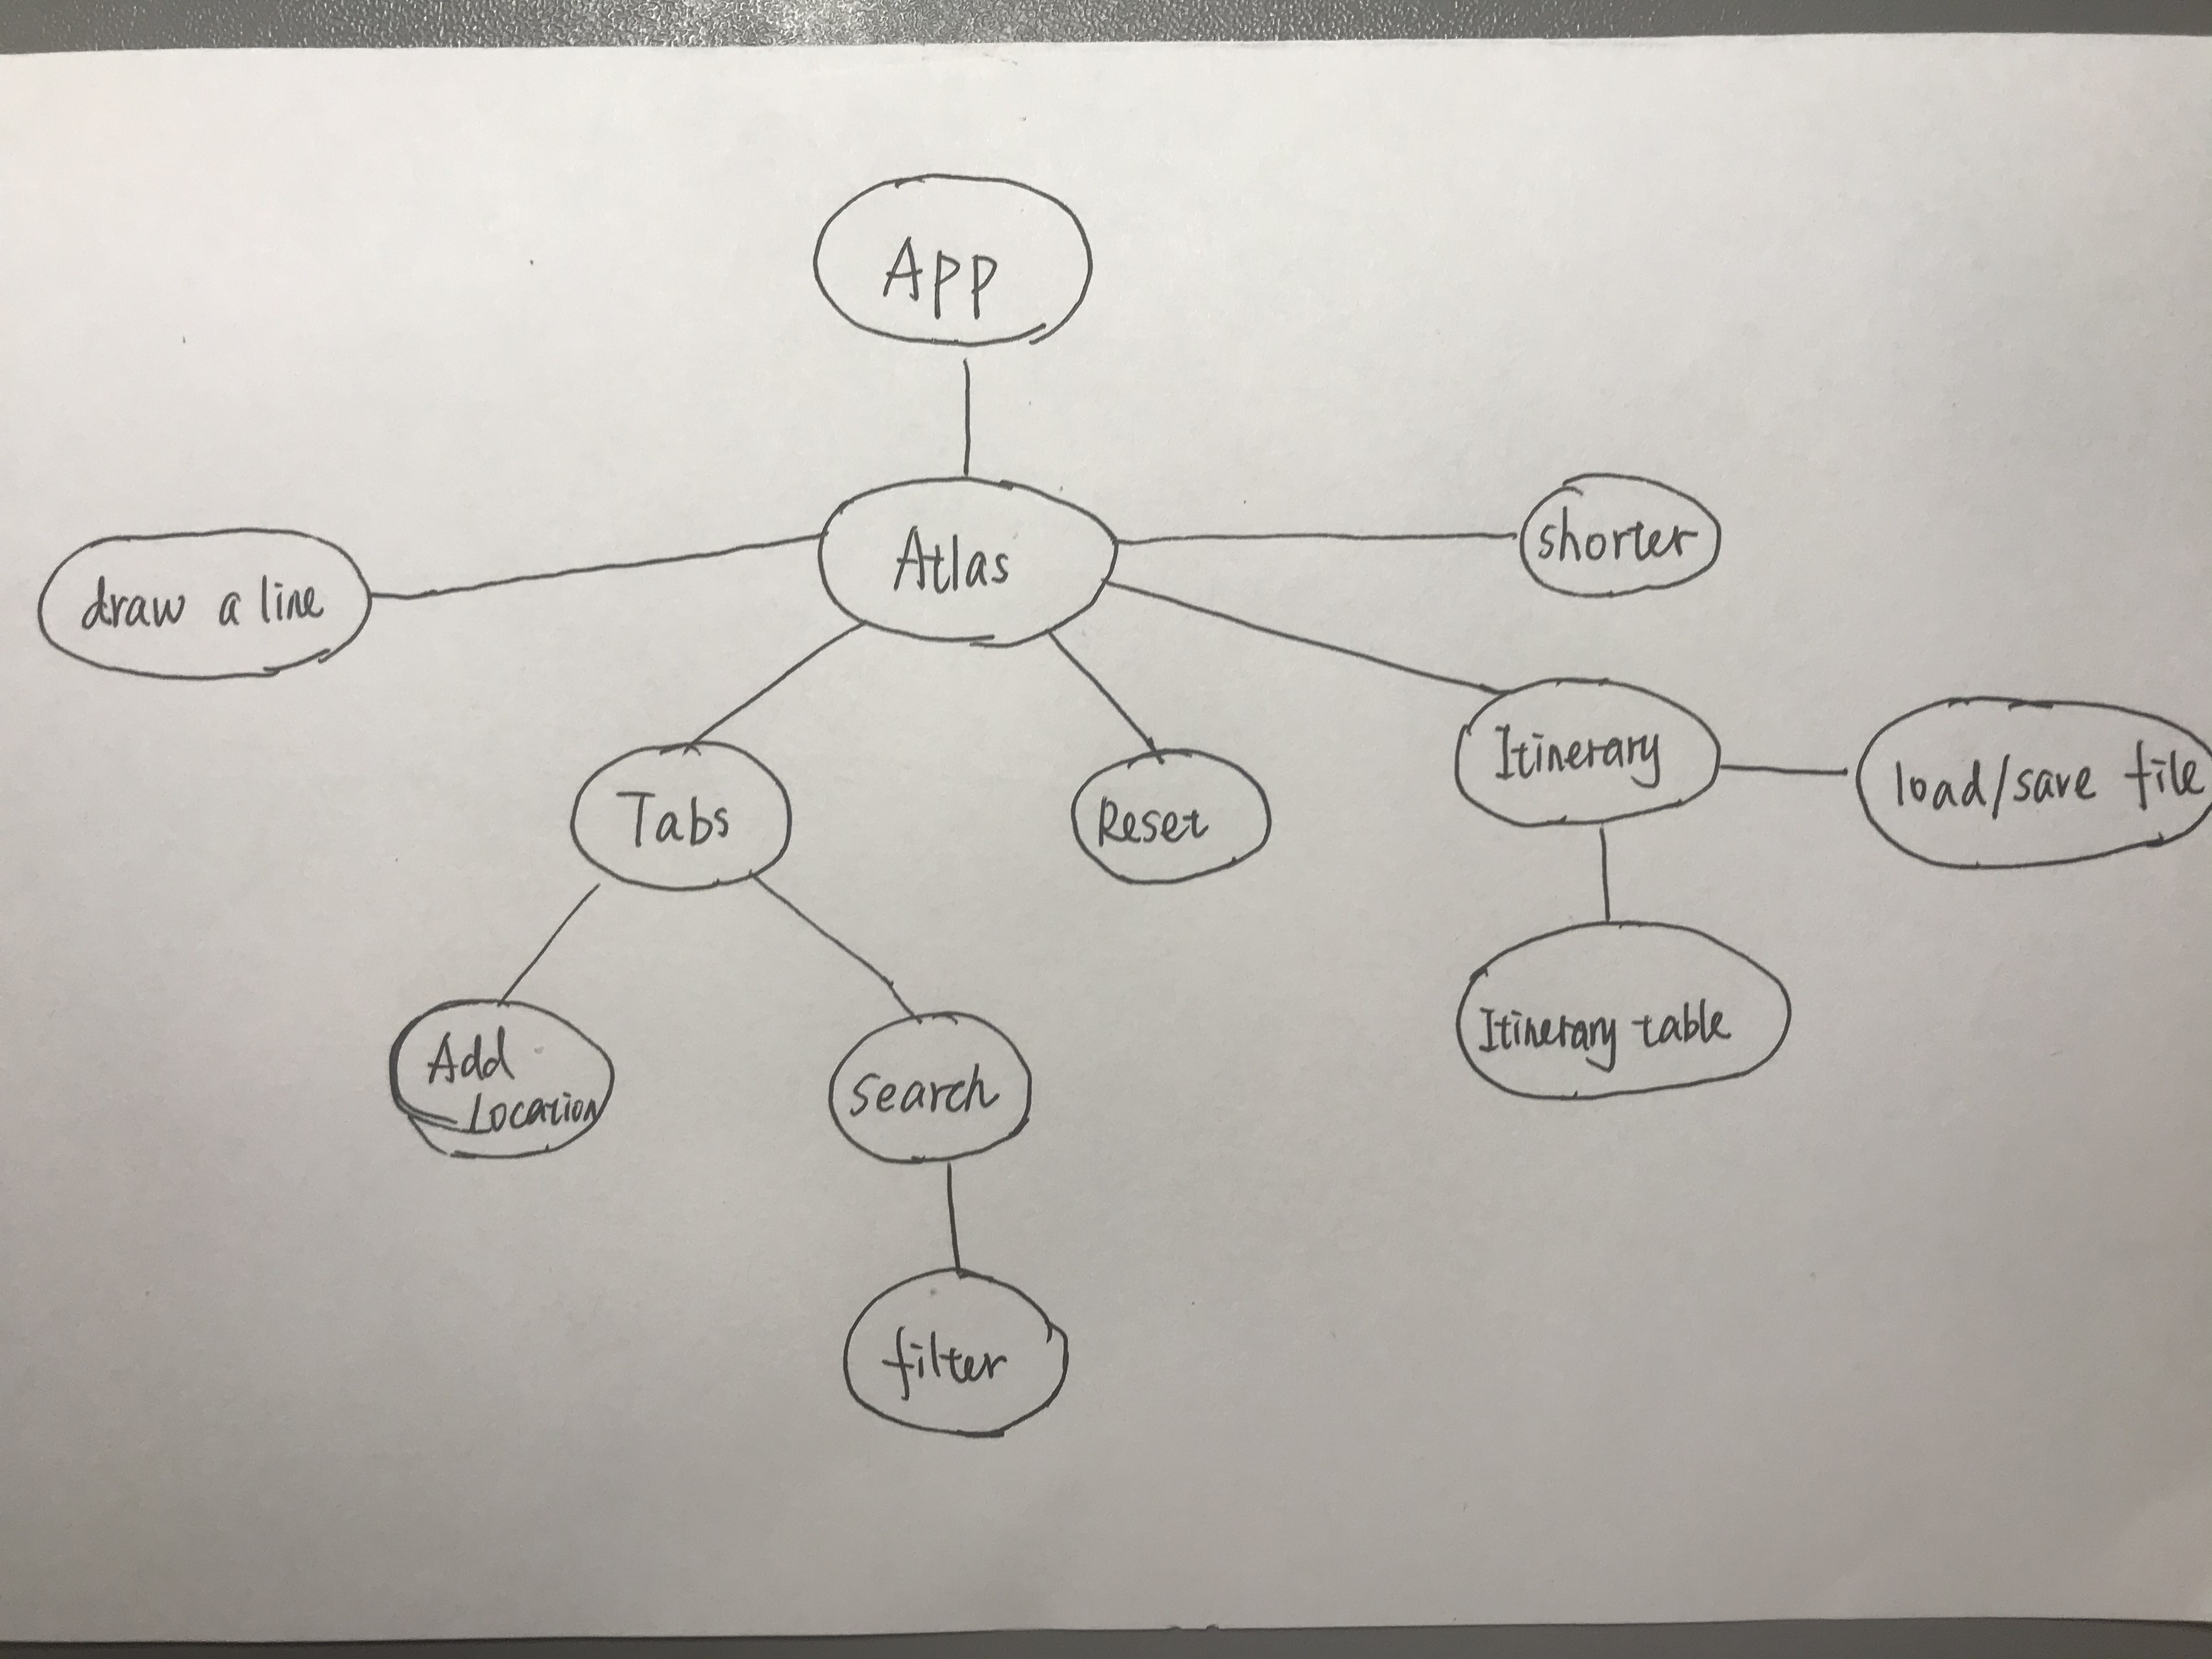 APP
draw a line
Atlas
shorter
Tabs
Reset
Itinerary
load/save file
Add
Location
Search
Itinerary table
filter